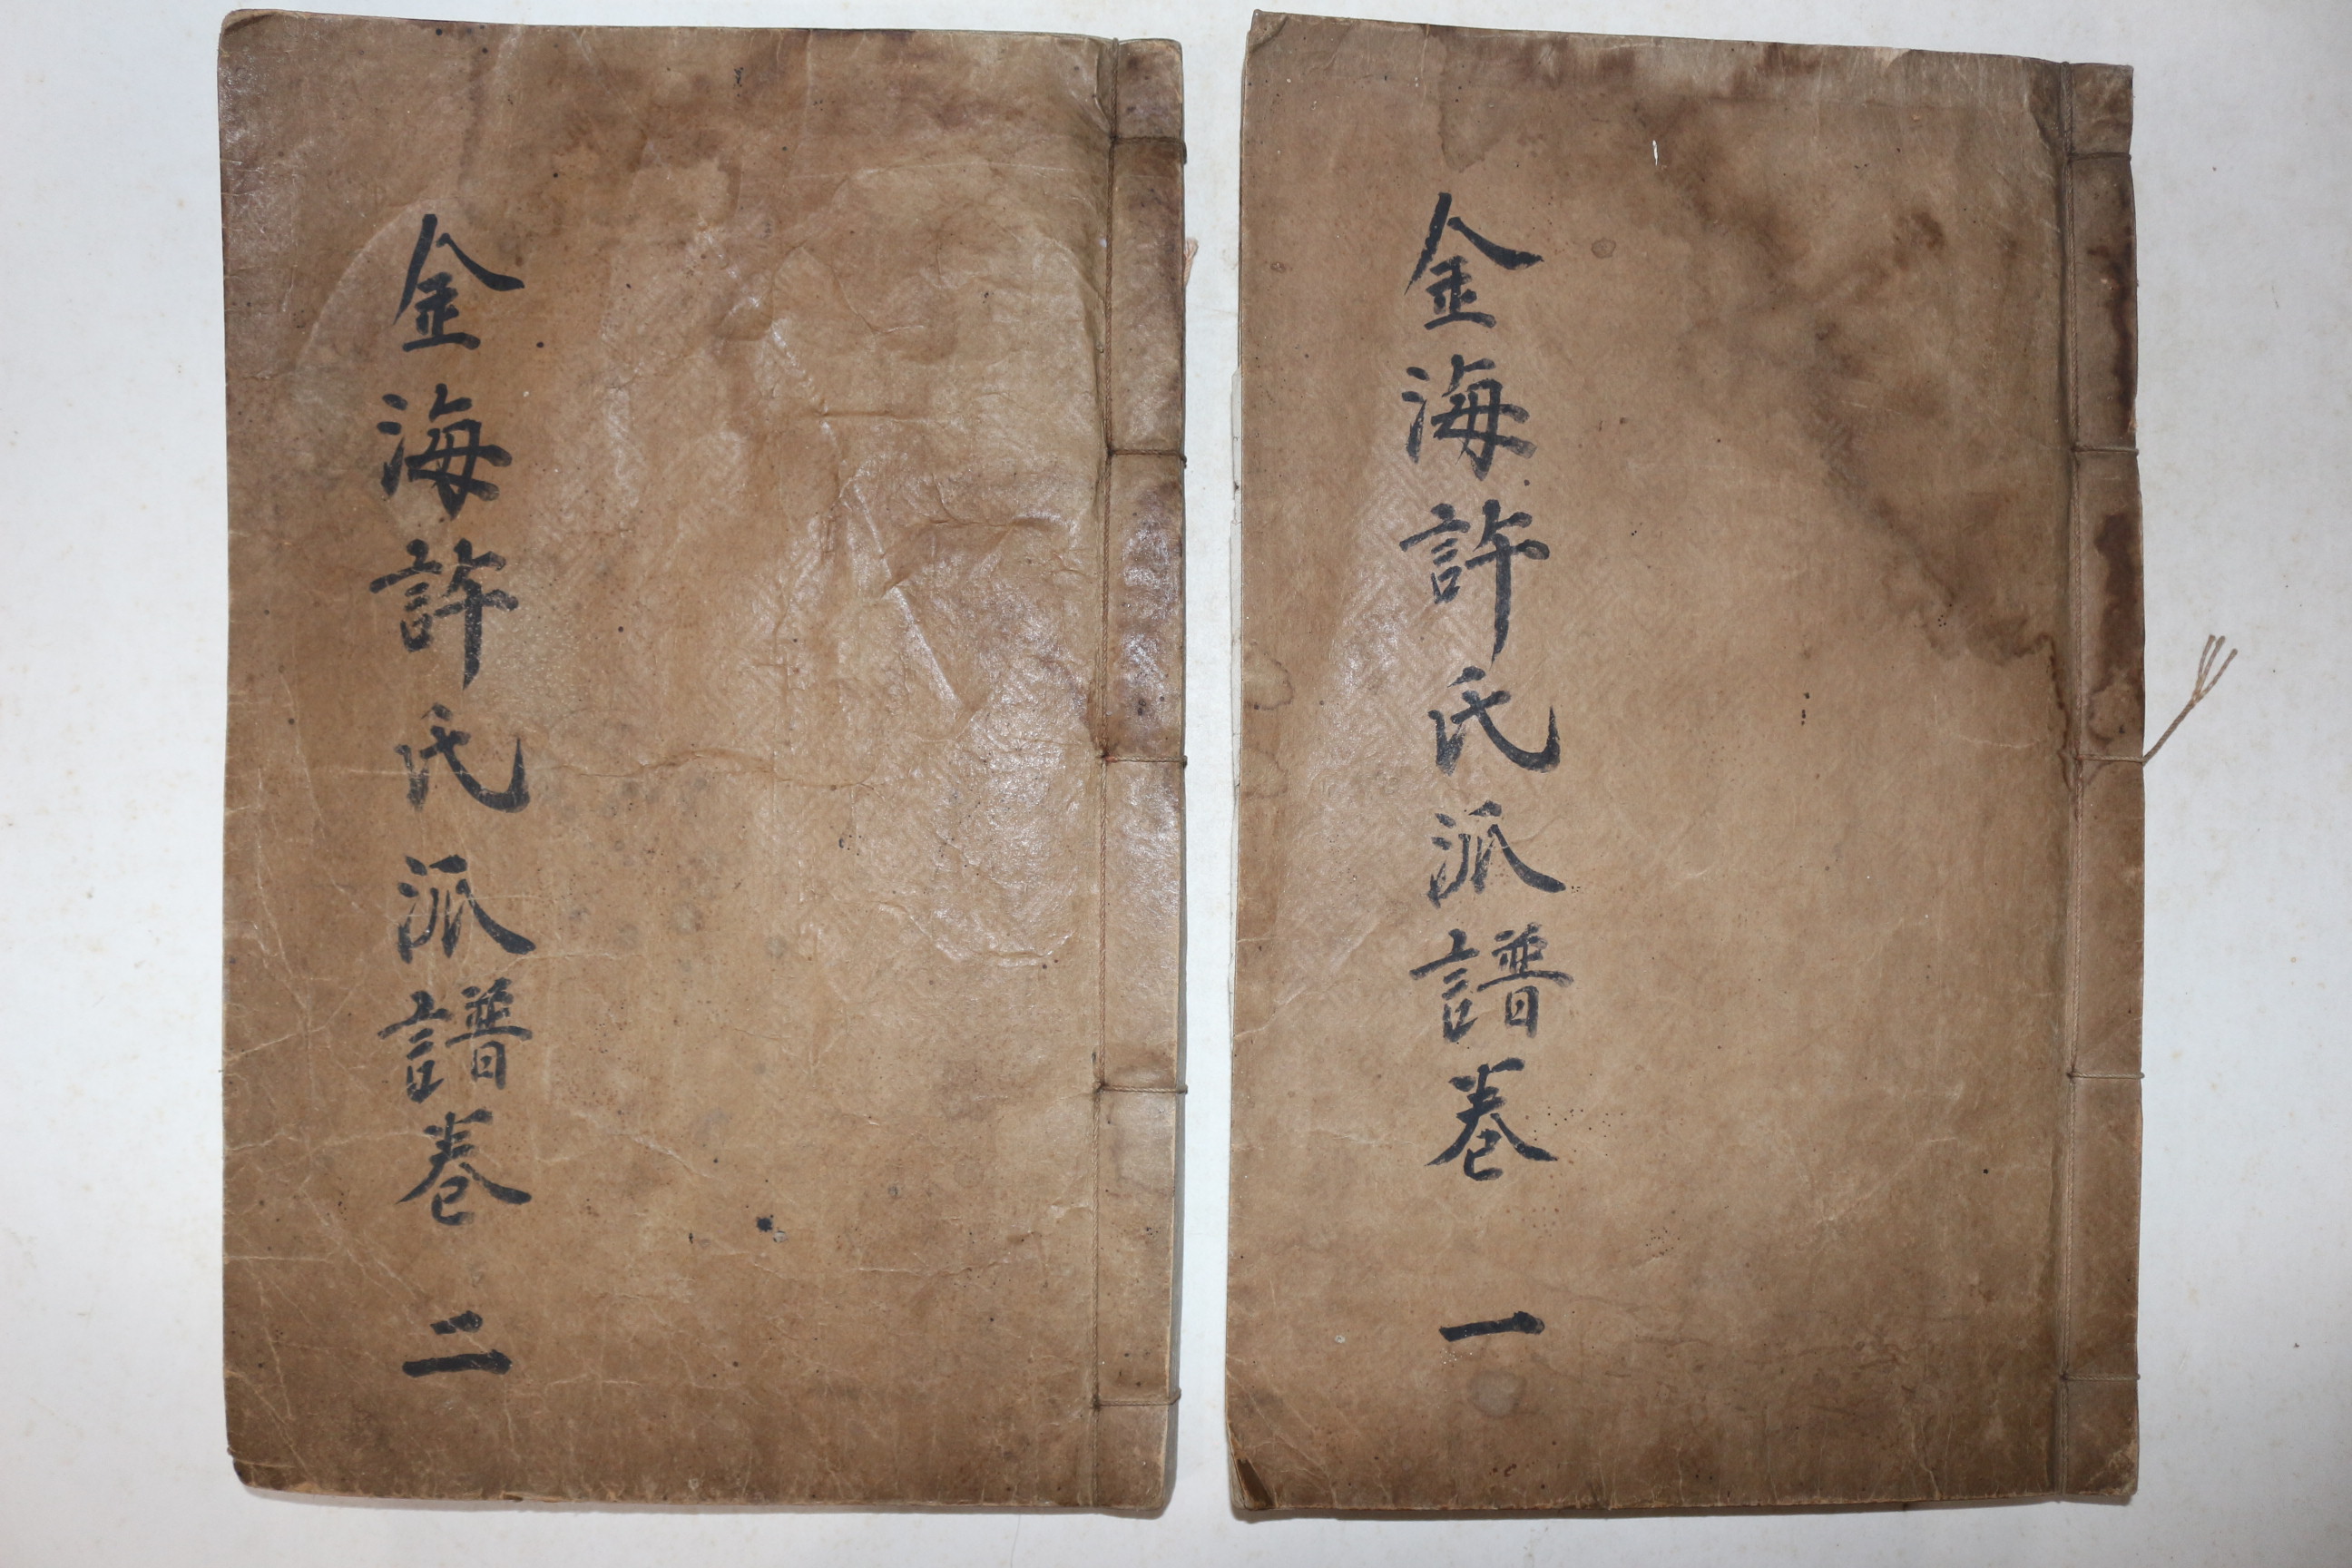 金海許氏派譜卷 一
金海許氏派譜卷 二